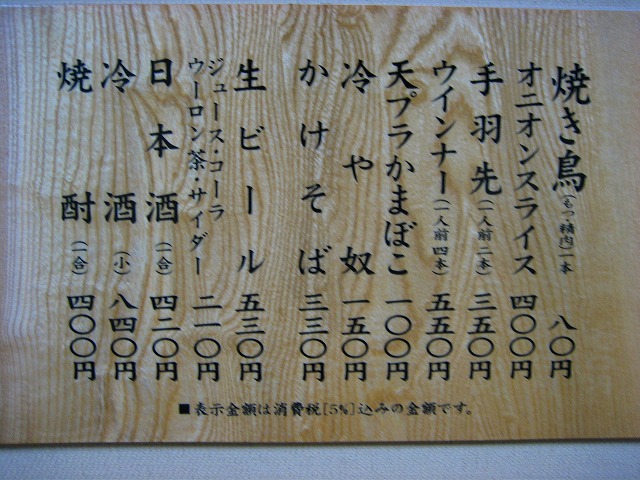 焼き鳥(もつ・精肉)一本 八〇円
オニオンスライス 四〇〇円
手羽先(一人前二本) 三五〇円
ウインナー(一人前四本) 五五〇円
天プラかまぼこ 一〇〇円
冷や奴 一五〇円
かけそば 三三〇円
生ビール 五三〇円
ジュース・コーラ
ウーロン茶・サイダー 二一〇円
日本酒(一合) 四二〇円
冷酒(小) 八四〇円
焼酎(一合) 四〇〇円
■表示金額は消費税[5%]込みの金額です。